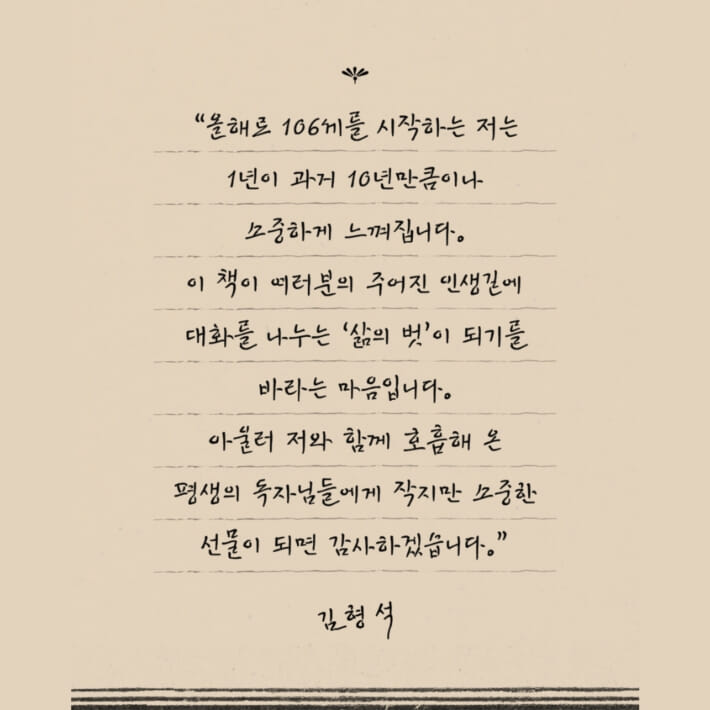 “올해로 106세를 시작하는 저는
1년이 과거 10년만큼이나
소중하게 느껴집니다.
이 책이 여러분의 주어진 인생길에
대화를 나누는 ‘삶의 벗’이 되기를
바라는 마음입니다.
아울러 저와 함께 호흡해 온
평생의 독자님들에게 작지만 소중한
선물이 되면 감사하겠습니다.”
김형석